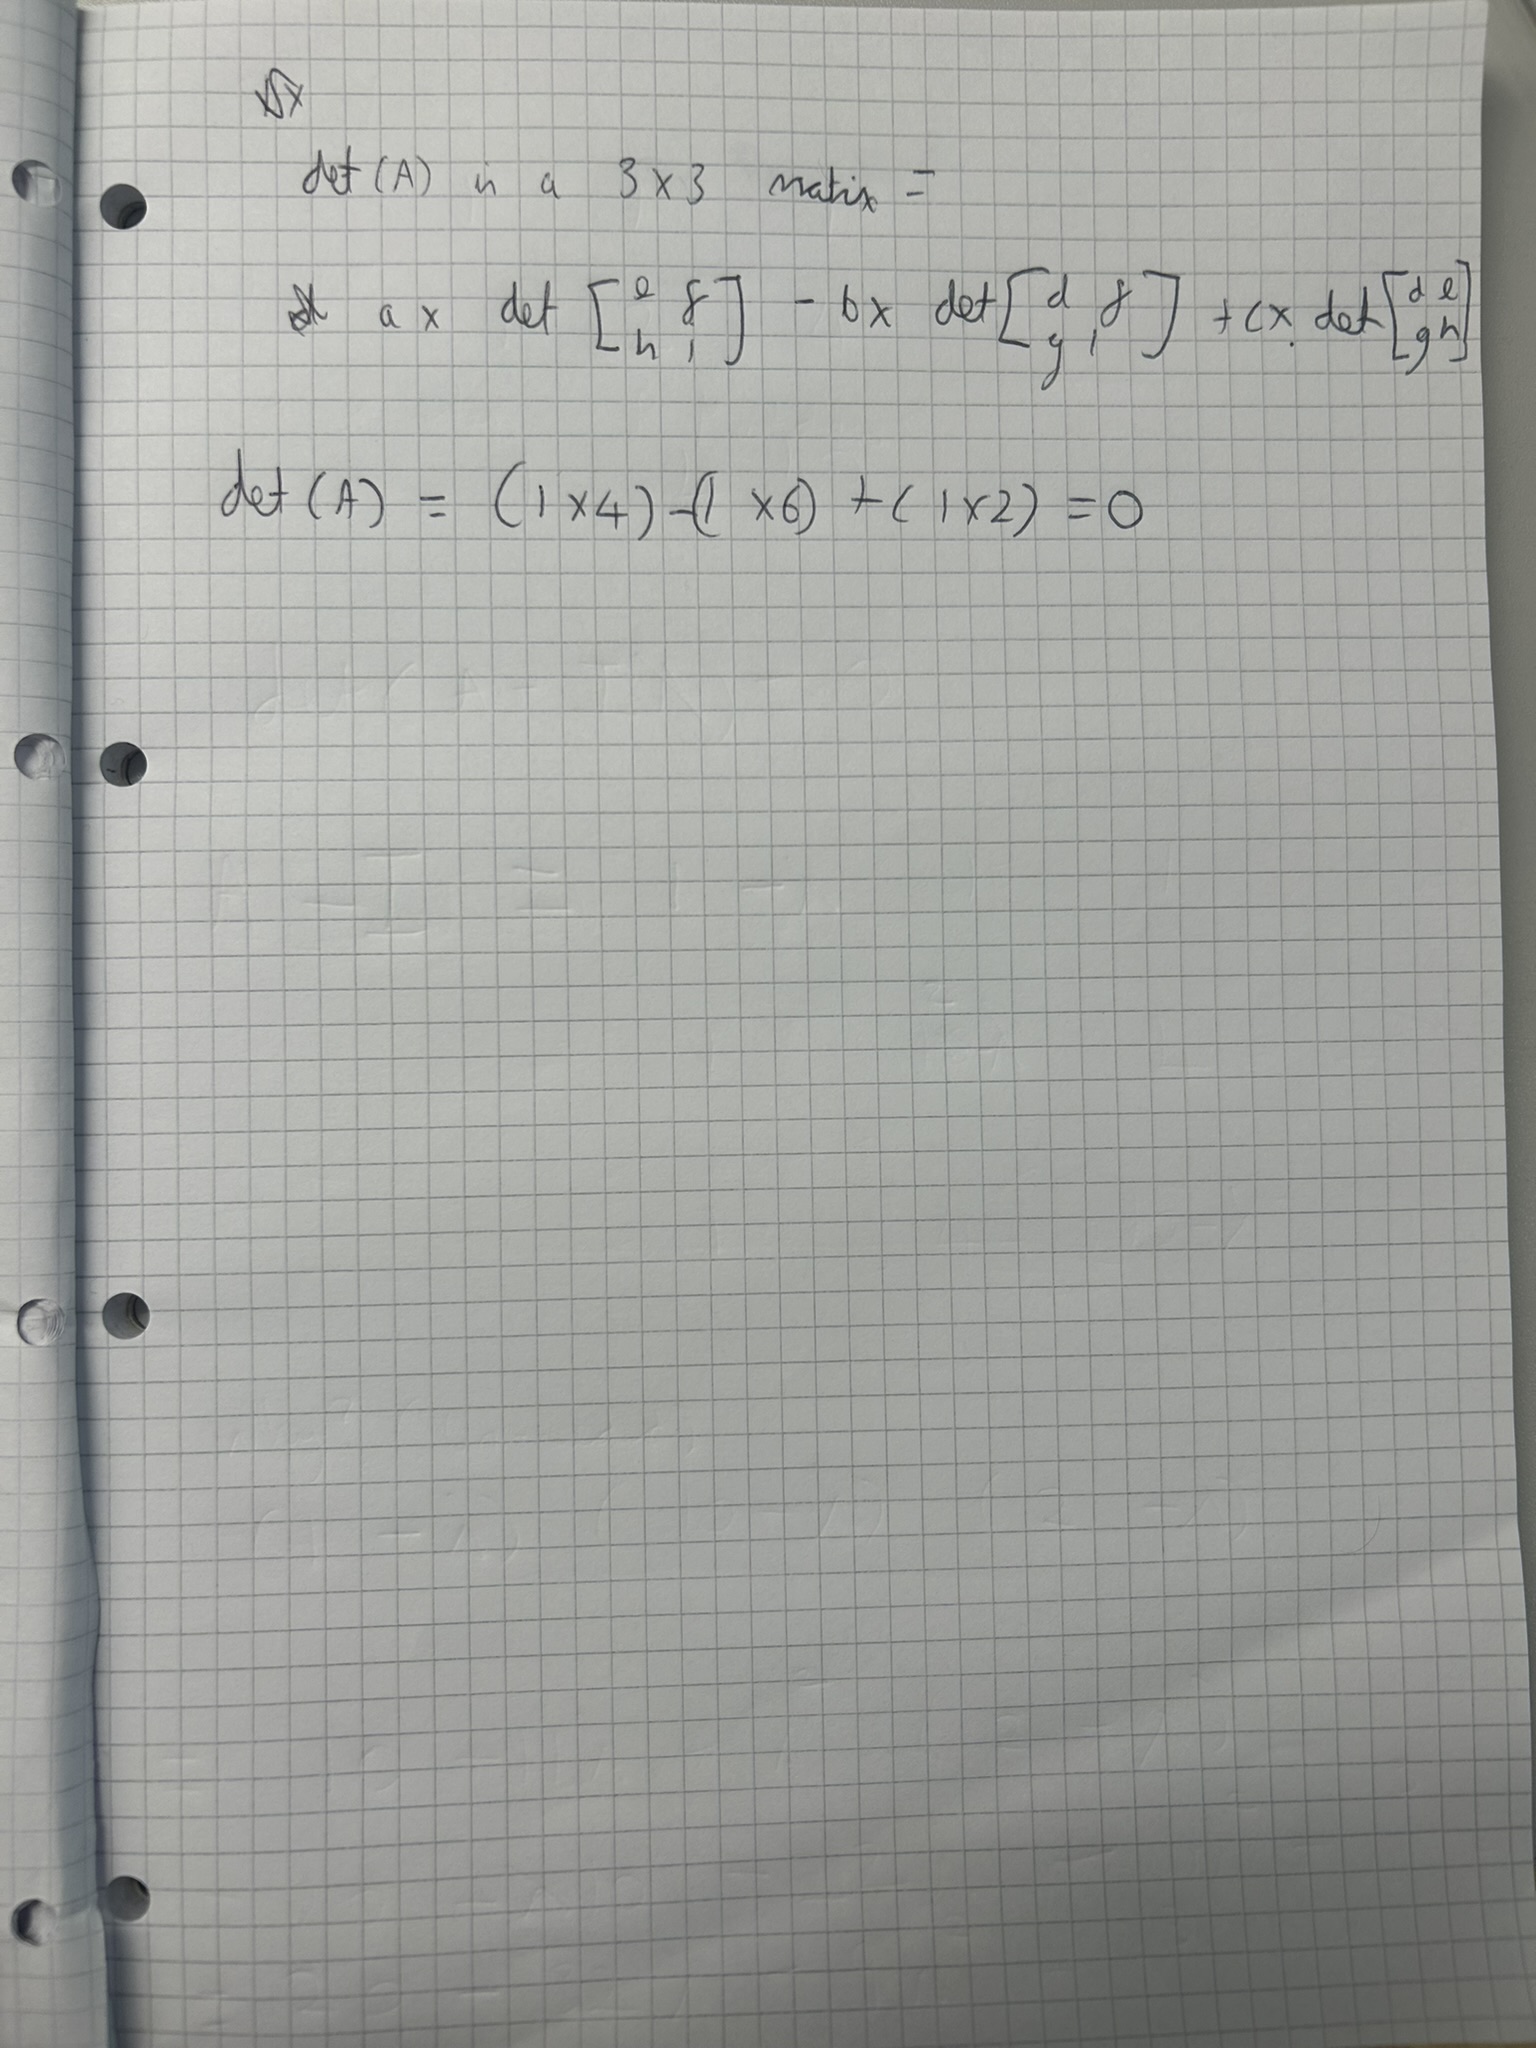 det (A) in a 3 x 3 matix =
a x det [e f h i] - b x det [d f g i] + c x det [d e g h]
det (A) = (1 x 4) - (1 x 6) + (1 x 2) = 0